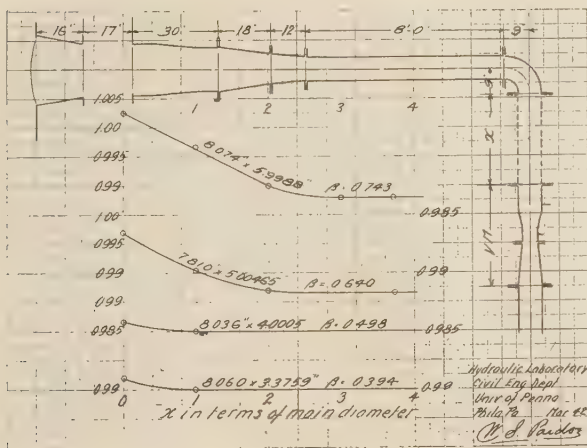 16" 17" 30" 18" 12" 8'-0 9
9"
x
VM
1.005
1 2 3 4
1.00
0.995
8.074" x 5.9988" β = 0.743
0.99
0.985
1.00
0.995
7.810 x 5.00465" β = 0.640
0.99
0.99
0.99
8.036" x 4.0005 β = 0.498
0.985
0.985
8.060 x 3.3759" β = 0.394
0.99
0.99
0 1 2 3 4
x in terms of main diameter
Hydraulic Laboratory
Civil Eng Dept
Univ of Penna
Phila Pa Mar
W. S. Pardoe